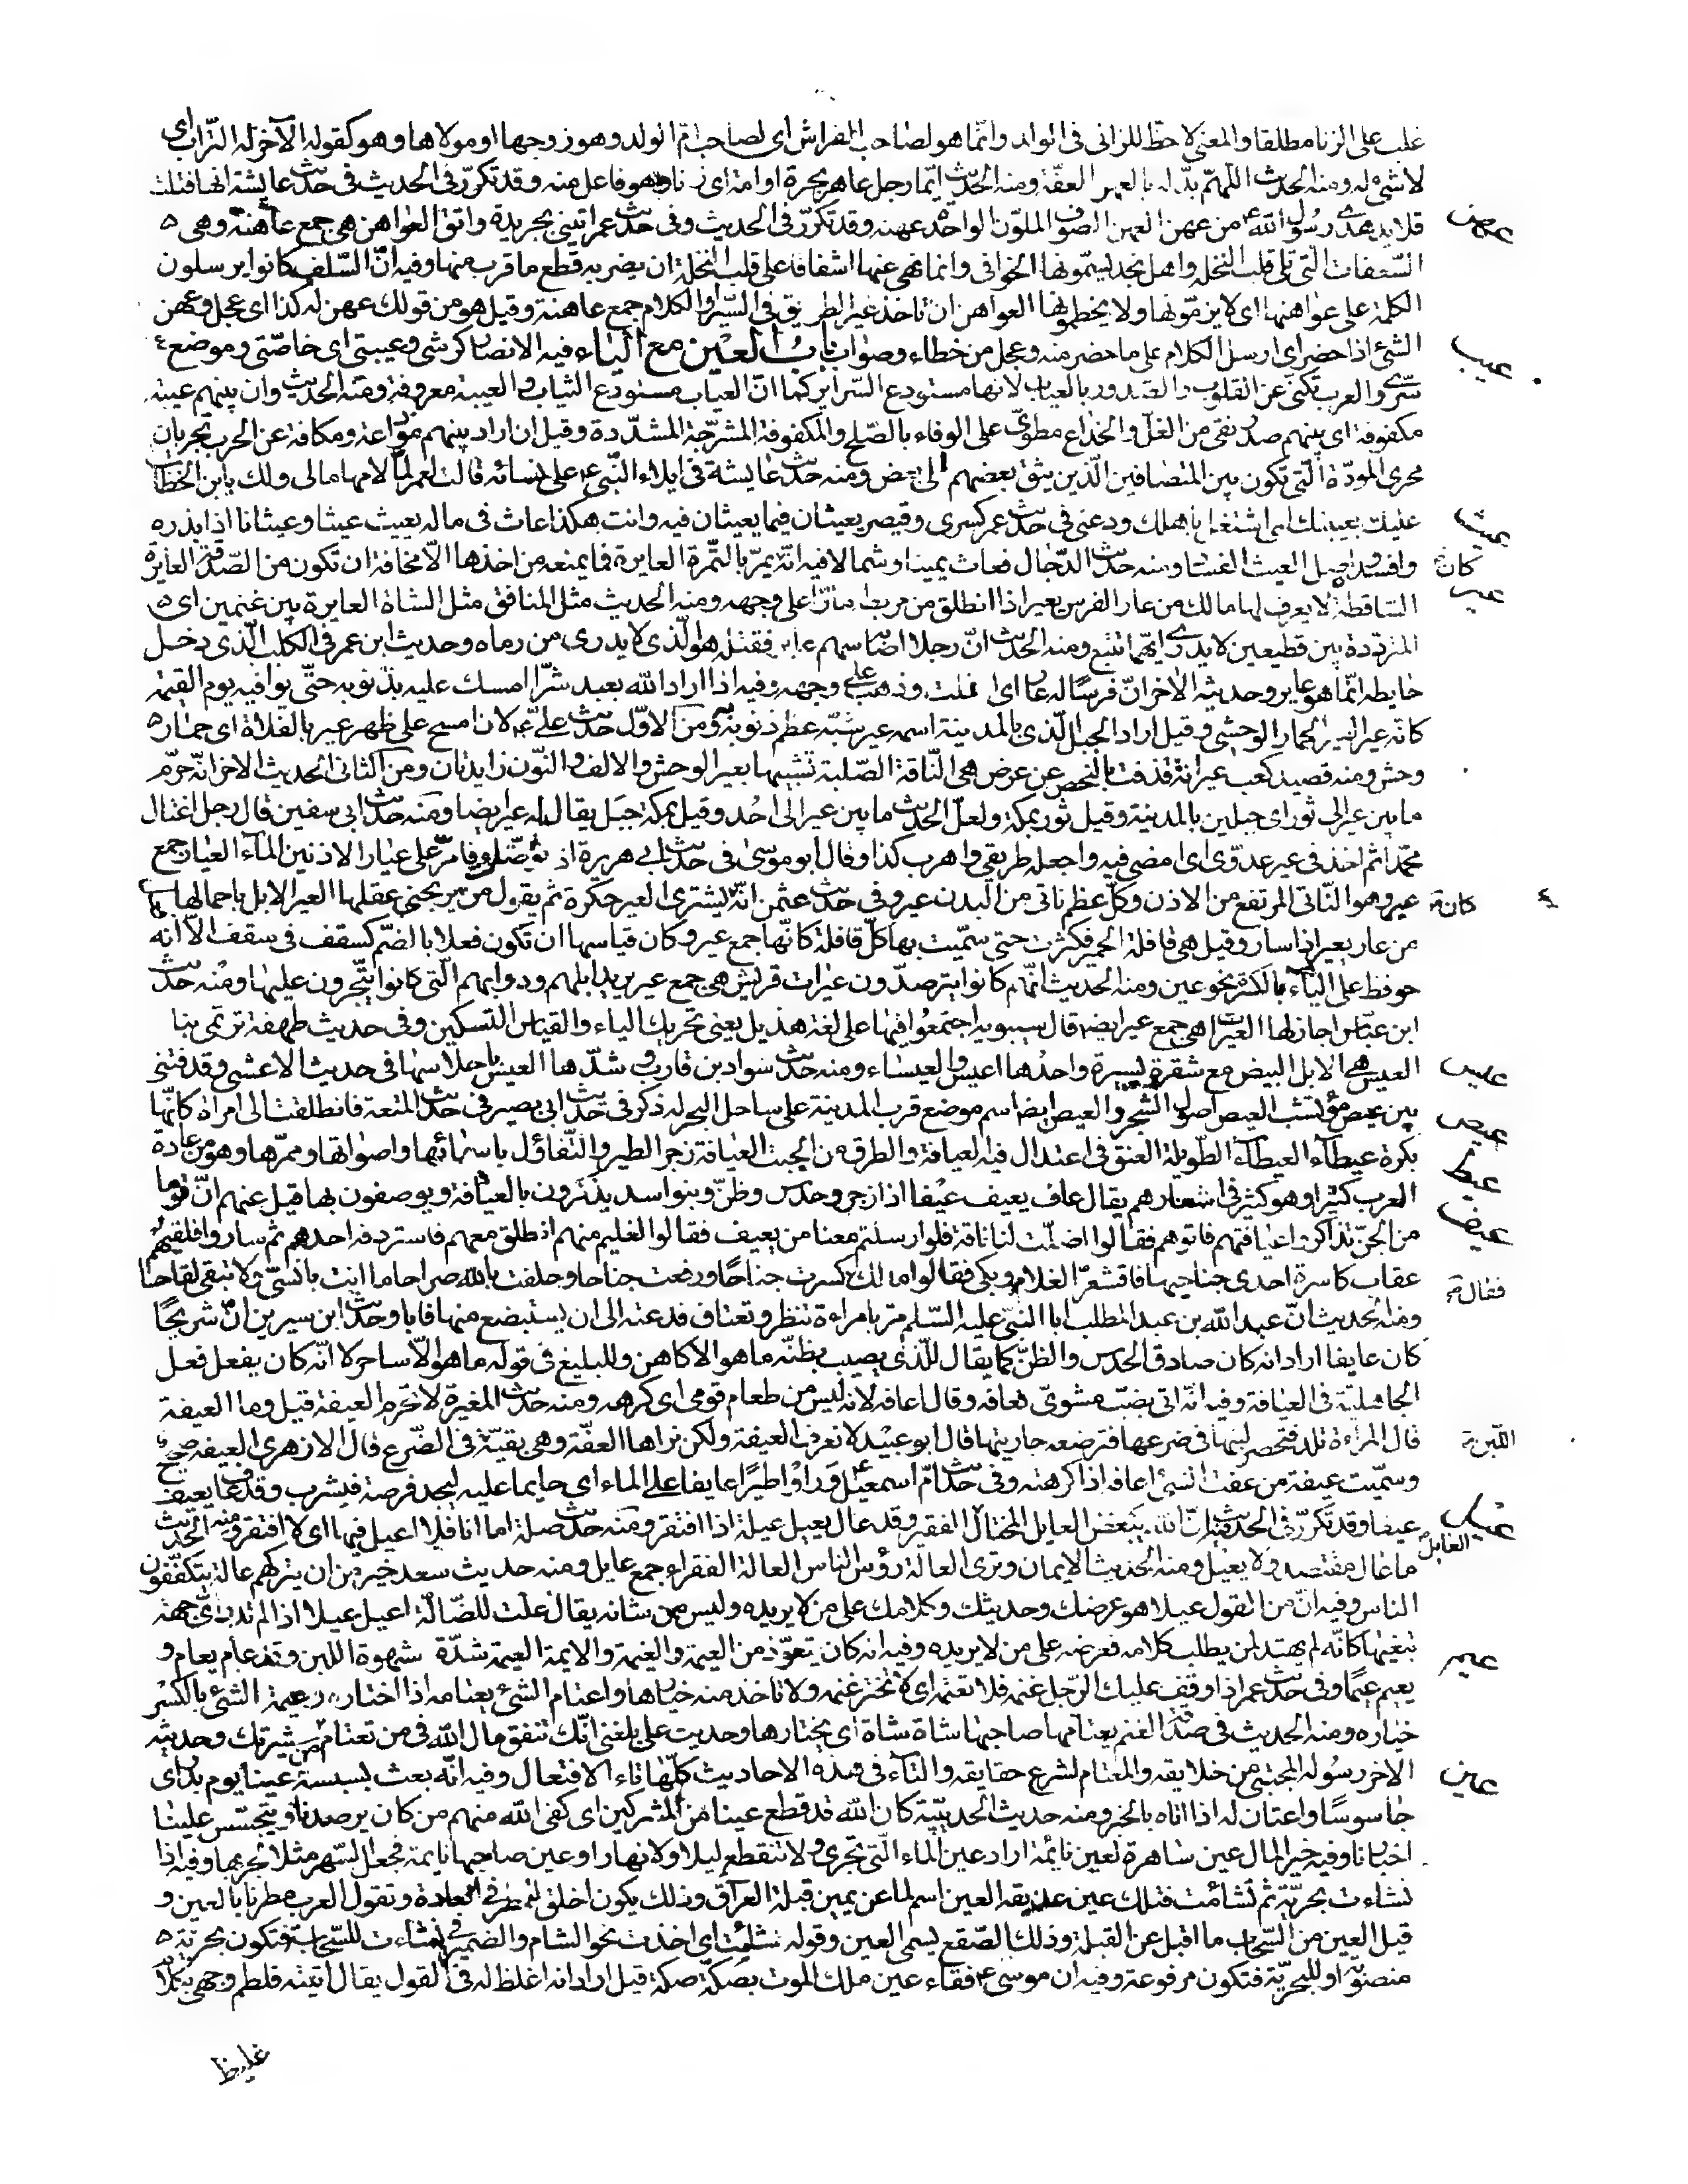 غلب على الزنا مطلقا والمعنى لا حظ للزانى فى الولد وانما هو لصاحب الفراش اى لصاحب امّ الولد وهو زوجها او مولاها وهو كقوله الآخر له التراب اى
لا شئ له ومنه الحديث اللهمّ بدّله بالعهر العفّة ومنه الحديث ايّما رجل عاهر بحرة او امة اى زنا وهو فاعل منه وقد تكرّر فى الحديث فى حديث عايشة انها فتلت
عهن
قلايد هدى رسول الله من عهن العهن الصوف الملوّن الواحدة عهنه وقد تكرّر فى الحديث وفى حديث عمر ائتينى بجريدة واتق العواهن هى جمع عاهنة وهى
السّعفات التى تلى قلب النخل واهل نجد يسمّونها الخوافى وانما نهى عنها اشفاقا على قلب النخلة ان يضر به قطع ما قرب منها وفيه انّ السّلف كانوا يرسلون
الكلمة على عواهنها اى لا يزمّونها ولا يخطمونها العواهن ان تاخذ غير الطريق فى السّير او الكلام جمع عاهنة وقيل هو من قولك عهن له كذا اى عجل وعهن
عيب
الشئ اذا حضر اى ارسل الكلام على ما حضر منه وعجل من خطاء وصواب باب العين مع الياء فيه الانصار كرشى وعيبتى اى خاصّتى وموضع
سرّى والعرب تكنى عن القلوب والصدور بالعياب لانها مستودع السّراير كما انّ العياب مستودع الثياب والعيبة معروفة ومنه الحديث وان بينهم عيبة
مكفوفة اى بينهم صدر نقى من الغلّ والخداع مطوىّ على الوفاء بالصّلح والمكفوفة المشرّجة المشدّدة وقيل ان اراد بينهم موادعة ومكافة عن الحرب تجريان
مجرى المودّة التى تكون بين المتصافين الّذين يثق بعضهم الى بعض ومنه حديث عايشة فى ايلاء النّبى على نسائه قالت لعمر لمّا لامها مالى ولك يا بن الخطاب
عيث
عليك بعيبتك اى اشتغل باهلك ودعنى فى حديث عمر كسرى وقيصر يعيثان فيما يعيثان فيه وانت هكذا عاث فى ماله يعيث عيثا وعيثانا اذا بذره
كان
وافسده واصل العيث الفساد ومنه حديث الدّجال فعاث يمينا وشمالا فيه انّه يمرّ بالتّمرة العايرة فما يمنعه من اخذها الّا مخافة ان تكون من الصّدقة العايرة
عير
السّاقطة لا يعرف لها مالك من عار الفرس يعير اذا انطلق من مربطه مارّا على وجهه ومنه الحديث مثل المنافق مثل الشاة العايرة بين غنمين اى
المتردّدة بين قطيعين لا يدرى ايّهما تتبع ومنه الحديث انّ رجلا اصابه سهم عاير فقتله هو الّذى لا يدرى من رماه وحديث ابن عمر فى الكلب الّذى دخل
حايطه انّما هو عاير وحديثه الاخر انّ فرسًا له عار اى افلت وذهب على وجهه وفيه اذا اراد الله بعبد شرّا امسك عليه بذنوبه حتّى يوافيه يوم القيمة
كانّه عير العير الحمار الوحشى وقيل اراد الجبل الّذى بالمدينة اسمه عير شبّه عظم ذنوبه به ومن الاوّل حديث علىّ لان امسح على ظهر عير بالفلاة اى حمار
وحش ومنه قصيد كعب عيرانة قذفت بالنحض عن عرض هى النّاقة الصّلبة تشبيها بعير الوحش والالف والنّون زايدتان ومن الثانى الحديث الاخر انّه حرّم
ما بين عير الى ثور اى جبلين بالمدينة وقيل ثور بمكة ولعلّ الحديث ما بين عير الى احُد وقيل بمكة جبَل يقال له عير ايضا ومنه حديث ابى سفين قال رجل اغتال
محمّدا ثم اخذ فى عير عدوّى اى امضى فيه واجعله طريقى واهرب كذا وقال ابو موسى فى حديث ابى هريرة اذا توضّات فامرّ على عيار الاذنين الماء العيار جمع
كانه
عير وهو النّاتى المرتفع من الاذن وكلّ عظم ناتى من البدن عير وفى حديث عثمن انّه يشترى العير حكرة ثم يقول من يربحنى عقلها العير الابل باحمالها
من عار يعير اذا سار وقيل هى قافلة الحمير فكثرت حتى سمّيت بها كلّ قافلة كانّها جمع عير وكان قياسها ان تكون فعلا بالضمّ كسقف فى سقف الّا انّه
حوفظ على الياء بالكسرة نحو عين ومنه الحديث انّهم كانوا يترصدّون عيرات قريش هى جمع عير يريد ابلهم ودوابهم الّتى كانوا يتّجرون عليها ومنه حديث
ابن عبّاس اجاز لها العيرات هى جمع عير ايضا قال سيبويه اجتمعُوا فيها على لغة هذيل يعنى تحريك الياء والقياس التسكين وفى حديث طهفة ترتمى بنا
عيس
العيس هى الابل البيض مع شقرة يسيرة واحدُها اعيس والعيساء ومنه حديث سواد بن قارب وشدّها العيس باحلاسها فى حديث الاعشى وقد فتنى
عيص
بين عيص مؤتشب العيص اصول الشّجر والعيص ايضا اسم موضع قرب المدينة على ساحل البحر له ذكر فى حديث ابى بصير فى حديث المتعة فانطلقت الى امراة كانّها
عيط
بكرة عيطآء العيطآء الطّويلة العنق فى اعتدال فيه العيافة والطرق من الجبت العيافة زجر الطير والتّفاؤل باسمائها واصواتها وممرّها وهو من عادة
عيف
العرب كثيرا وهو كثير فى اشعارهم يقال عاف يعيف عيْفا اذا زجر وحدس وظنّ وبنو اسد يذكرون بالعيافة ويوصفون بها قيل عنهم انّ قوما
من الجنّ تذاكروا عيافتهم فاتوهم فقالوا اضلّت لنا ناقة فلو ارسلتم معنا من يعيف فقالوا لغليم منهم انطلق معهم فاستردفه احدهم ثم ساروا فلقيهم
فقال
عقاب كاسرة احدى جناحيها فاقشعرّ الغلام وبكى فقالوا مالك كسرت جناحًا ورفعت جناحا وحلفت بالله صراحا ما انت بانسىّ ولا تبغى لقاحا
ومنه الحديث انّ عبد الله بن عبد المطلب ابا النّبىّ عليه السّلام مرّ بامراءة تنظر وتعتاف فدعته الى ان يستبضع منها فابا وحديث ابن سيرين انّ شريحًا
كان عايفا اراد انه كان صادق الحدس والظنّ كما يقال للّذى يصيب بظنّه ما هو الا كاهن وللبليغ فى قوله ما هو الّا ساحر لا انّه كان يفعل فعل
الجاهليّة فى العيافة وفيه انّه اتى بضبّ مشوىّ فعافه وقال اعافه لانه ليس من طعام قومى اى كرهه ومنه حديث المغيرة لا تحرّم العيفة قيل وما العيفة
اللبن
قال المراءة تلد فيحصر لبنها فى ضرعها فترضعه جاريتها قال ابو عبيْد لا نعرف العيفة ولكن نراها العفّة وهى بقيّة فى الضّرع قال الازهرى العيفه صحيح
وسمّيت عيفة من عفت الشئ اعافه اذا كرهته وفى حديث امّ اسمعيل ورأوْا طيرًا عايفا على الماء اى حايما عليه ليجد فرصة فيشرب وقد عاف يعيف
عيل
عيفا وقد تكرّر فى الحديث فيه انّ الله يبغض العايل المختال الفقير وقد عال يعيل عيلة اذا افتقر ومنه حديث صلة اما انا فلا اعيل فيها اى لا افتقر ومنه الحديث
العايل
ما عال مقتصد ولا يعيل ومنه الحديث الايمان وترى العالة رؤس الناس العالة الفقراء جمع عايل ومنه حديث سعد خير من ان يتركهم عالة يتكفّفون
الناس وفيه انّ من القول عيلا هو عرضك وحديثك وكلامك على من لا يريده وليس من شانه يقال علت للضّالّة اعيل عيلا اذا لم تدر اىّ جهة
عيم
تبغيها كانّه لم يهتد لمن يطلب كلامه فعرضه على من لا يريده وفيه انه كان يتعوّذ من العيمة والغيمة والايمة العيمة شدّة شهوة اللبن وقد عام يعام و
يعيم عيمًا وفى حديث عمر اذا وقف عليك الرّجل غنمه فلا تعتمه اى لا تختر غنمه ولا تاخذ منه خيارها واعتام الشئ يعتامه اذا اختاره وعيمة الشئ بالكسْر
خياره ومنه الحديث فى صدقة الغنم يعتامها صاحبها شاة شاة اى يختارها وحديث على بلغنى انّك تنفق مال الله فى من تعتام من عشيرتك وحديثه
عين
الاخر رسُوله المجتبى من خلايقه والمعتام لشرع حقايقه والتآء فى هذه الاحاديث كلّها تاء الافتعال وفيه انّه بعث بسبسة عينا يوم بدر اى
جاسوسًا واعتان له اذا اتاه بالخبر ومنه حديث الحديبيّة كان الله قد قطع عينا من المشركين اى كفى الله منهم من كان يرصدنا ويتجسّس علينا
اخبارنا وفيه خير المال عين ساهرة لعين نائمة اراد عين الماء الّتى تجرى ولا تنقطع ليلا ولا نهارا وعين صاحبها نايمة فجعل السّهر مثلا لجريها وفيه اذا
نشاءت بحريّة ثم تشاءمت فتلك عين غديقه العين اسم لما عن يمين قبلة العراق وذلك يكون اخلق للمطر فى العادة وتقول العرب مطرنا بالعين و
قيل العين من السّحاب ما اقبل عن القبلة وذلك الصّقع يسمى العين وقوله تشاءمت اى اخذت نحو الشام والضمير فى نشاءت للسّحابة فتكون بحرية
منصوبة او للبحريّة فتكون مرفوعة وفيه ان موسى فقاء عين ملك الموت بصكّة صكه قيل اراد انه اغلظ له فى القول يقال اتيته فلطم وجهى بكلام
غليظ